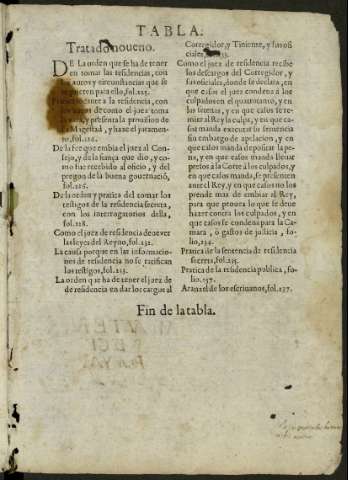 TABLA.
Tratado noueno.
DE La orden que se ha de tener
en tomar las residencias, con
los autos y circunstancias que se
requieren para ello, fol. 125.
a la residencia, con
los autos de como el juez toma
la vara, y presenta la prouision de
su Magestad, y haze el juramento,
fol. 126.
De la fee que embia el juez al Con-
sejo, y de la fiança que dio, y co-
mo fue recebido al oficio, y del
pregon de la buena gouernació,
fol. 126.
De la orden y pratica del tomar los
testigos de la residencia secreta,
con los interrogatorios della,
fol. 128.
Como el juez de residencia de ve ver
las leyes del Reyno, fol. 132.
La causa porque en las informacio-
nes de residencia no se ratifican
los testigos, fol. 133.
La orden que ha de tener el juez de
de residencia en dar los cargos al
Corregidor, y Tiniente, y sus ofi
ciales, 133.
Como el juez de residencia recibe
los descargos del Corregidor, y
sus oficiales, donde se declara, en
que casos el juez condena à los
culpados en el quatrotanto, y en
las setenas, y en que casos se re-
mite al Rey la culpa, y en que ca-
sos manda executar su sentencia
sin embargo de apelacion, y en
que casos manda depositar la pe-
na, y en que casos manda lleuar
presos a la Corte à los culpados, y
en que casos manda, se presenten
ante el Rey, y en que casos no los
prende mas de embiar al Rey,
para que prouea lo que se deue
hazer contra los culpados, y en
que casos se condena para la Ca-
mara, ò gastos de justicia, fo-
lio, 134.
Pratica de la sentencia de residencia
secreta, fol. 135.
Pratica de la residencia publica, fo-
lio. 137.
Aranzel de los escriuanos, fol. 137.
Fin de la tabla.